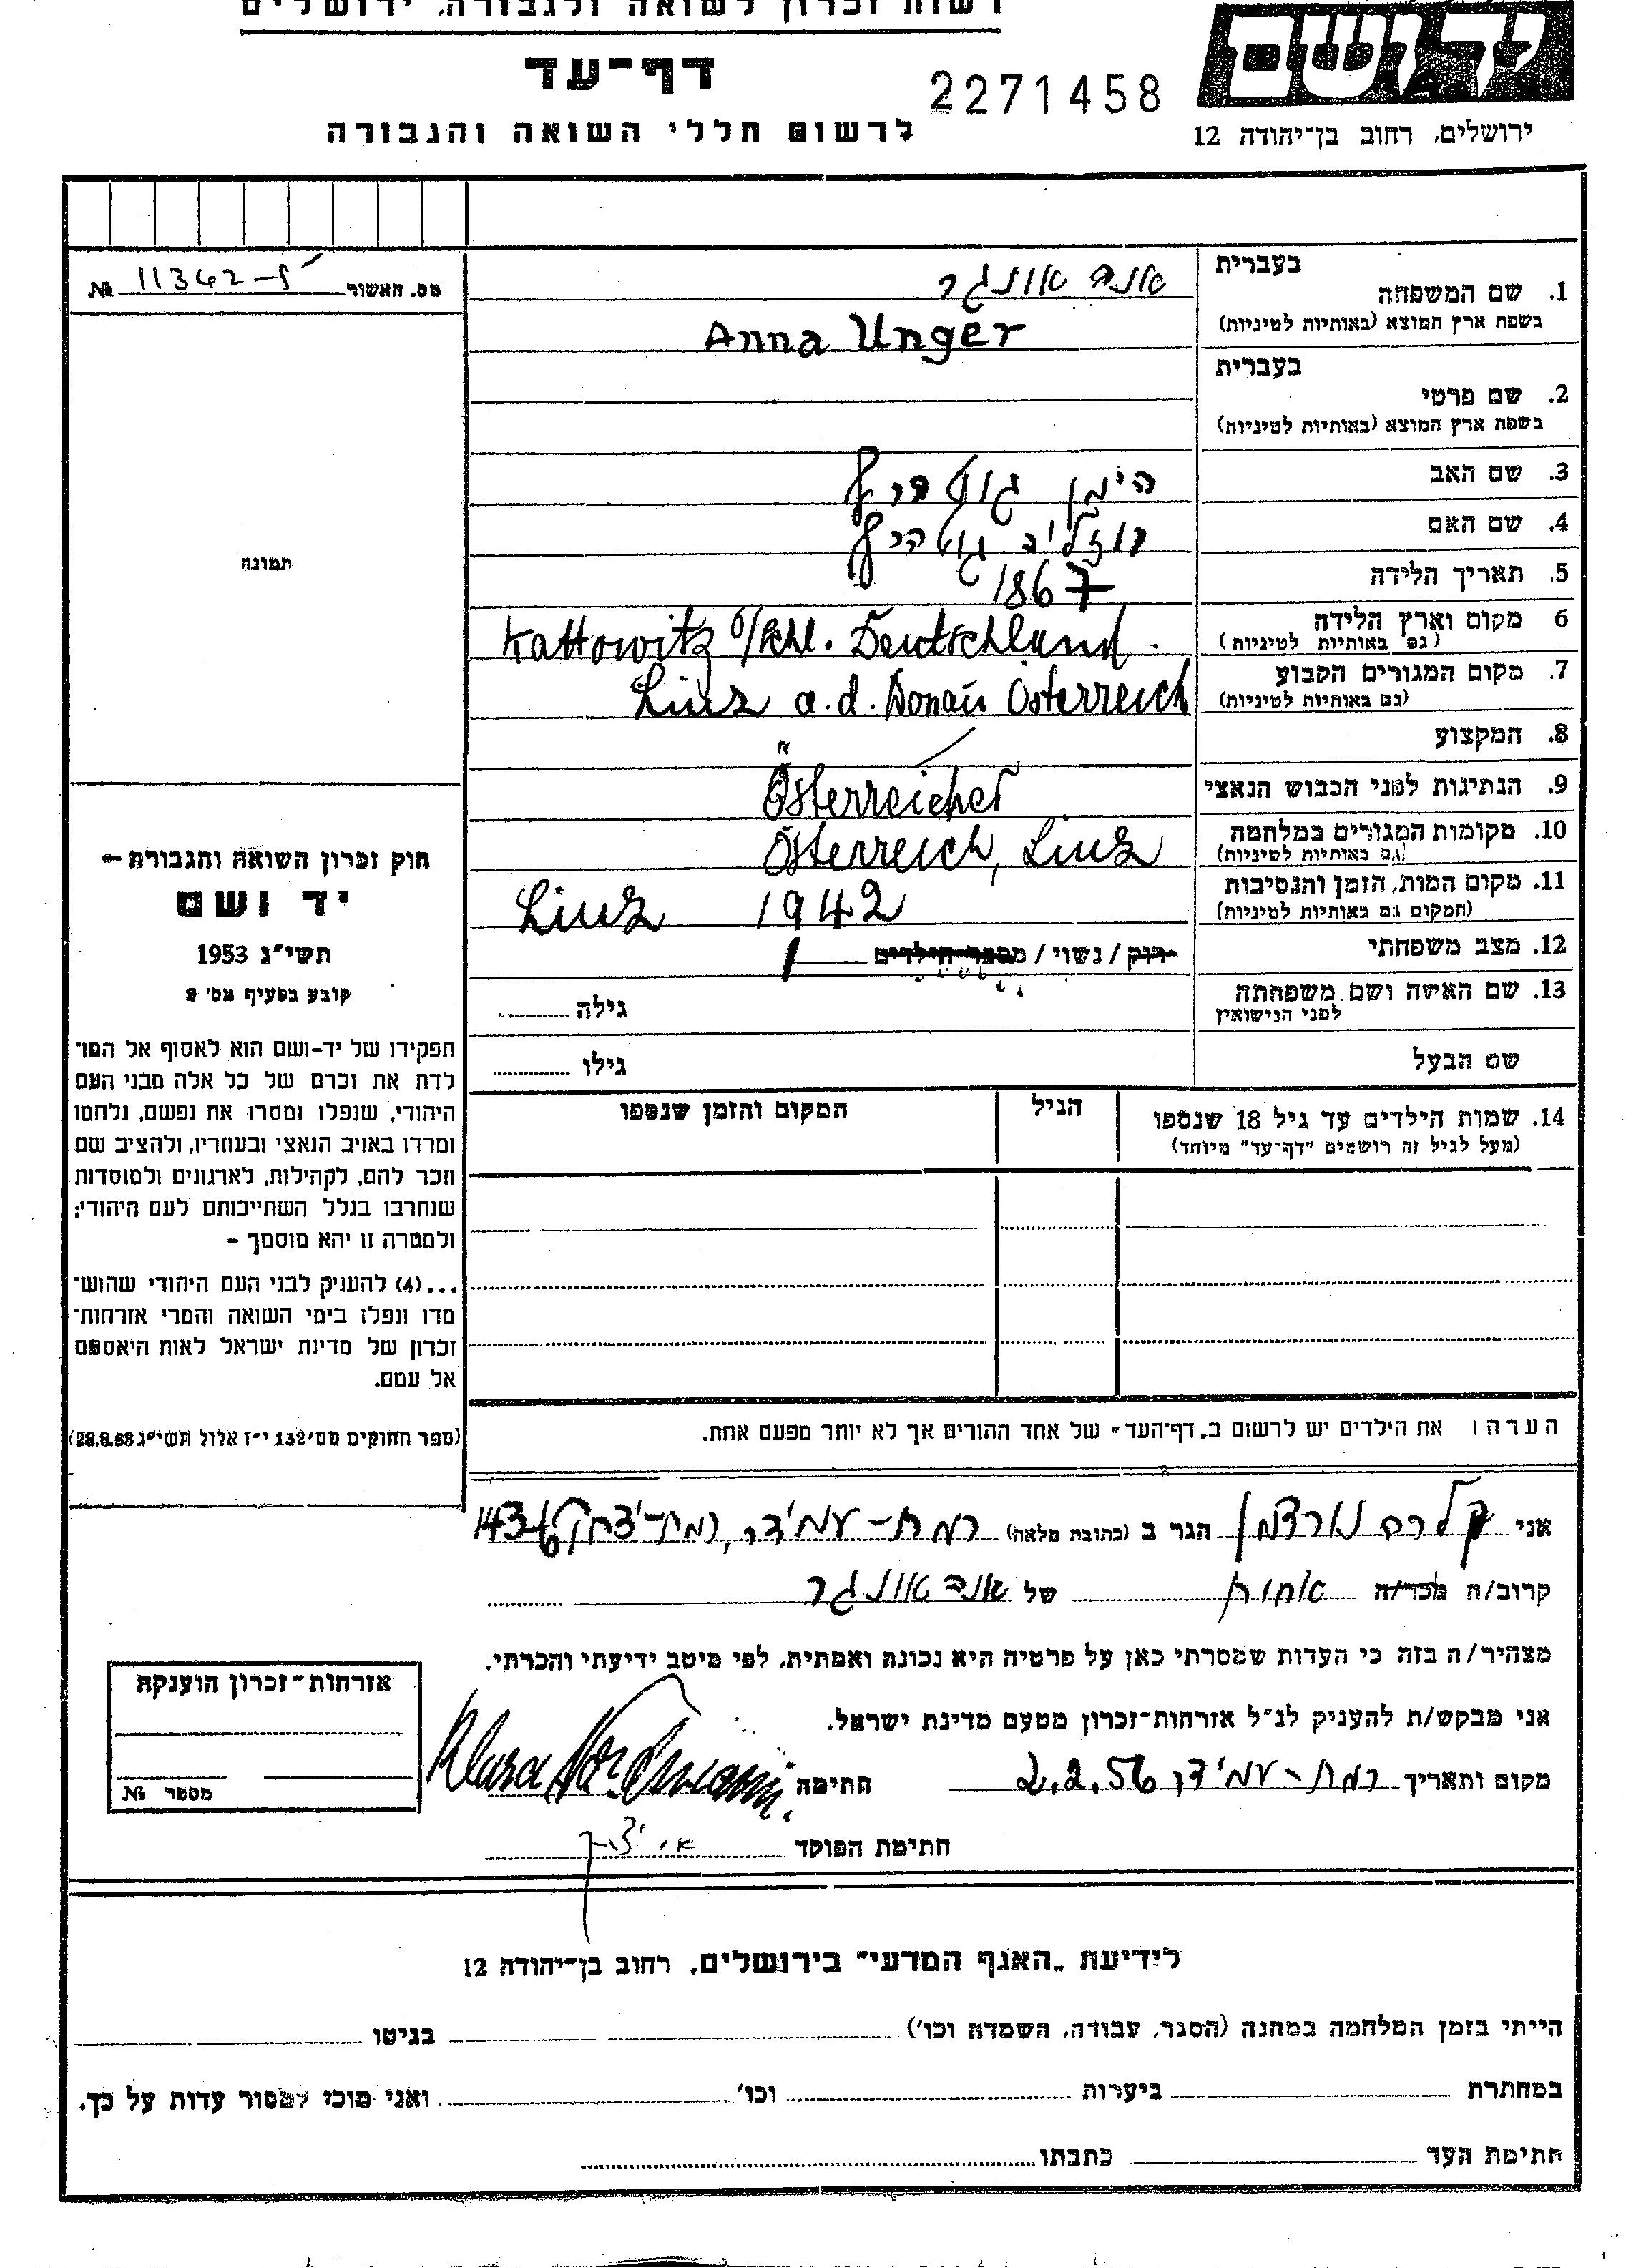 רשות זכרון לשואה ולגבורה, ירושלים
יד ושם
דף־עד
2271458
לרשום חללי השואה והגבורה
ירושלים, רחוב בן־יהודה 12
מס. האשור 11342-5 №
תמונה
חוק זכרון השואה והגבורה –
יד ושם
תשי״ג 1953
קובע בסעיף מס׳ 2
תפקידו של יד-ושם הוא לאסוף אל המו־
לדת את זכרם של כל אלה מבני העם
היהודי, שנפלו ומסרו את נפשם, נלחמו
ומרדו באויב הנאצי ובעוזריו, ולהציב שם
וזכר להם, לקהילות, לארגונים ולמוסדות
שנחרבו בגלל השתייכותם לעם היהודי;
ולמטרה זו יהא מוסמך –
...(4) להעניק לבני העם היהודי שהוש־
מדו ונפלו בימי השואה והמרי אזרחות־
זכרון של מדינת ישראל לאות היאספם
אל עמם.
(ספר החוקים מס׳ 132 י״ז אלול תשי״ג 28.8.53)
1. שם המשפחה בעברית אנה אונגר
בשפת ארץ המוצא (באותיות לטיניות) Anna Unger
2. שם פרטי בעברית
בשפת ארץ המוצא (באותיות לטיניות)
3. שם האב היימן
4. שם האם רוזליה
5. תאריך הלידה 1867
6 מקום וארץ הלידה (גם באותיות לטיניות) Kattowitz O/Schl. Deutschland.
7. מקום המגורים הקבוע (גם באותיות לטיניות) Linz a.d. Donau Österreich
8. המקצוע
9. הנתינות לפני הכבוש הנאצי Österreicher
10. מקומות המגורים במלחמה (גם באותיות לטיניות) Österreich, Linz
11. מקום המות, הזמן והנסיבות (המקום גם באותיות לטיניות) Linz 1942
12. מצב משפחתי רוק / נשוי / מספר הילדים 1
13. שם האשה ושם משפחתה לפני הנישואין גילה
שם הבעל גילו
14. שמות הילדים עד גיל 18 שנספו הגיל המקום והזמן שנספו
(מעל לגיל זה רושמים "דף־עד" מיוחד)
הערה: את הילדים יש לרשום ב„דף־העד" של אחד ההורים אך לא יותר מפעם אחת.
אני קלרה נורדמן הגר ב (כתובת מלאה) רמת-עמידר, רמת-יצחק 143/6
קרוב/ה מכר/ה אחות של אנה אונגר
מצהיר/ה בזה כי העדות שמסרתי כאן על פרטיה היא נכונה ואמתית, לפי מיטב ידיעתי והכרתי.
אני מבקש/ת להעניק לנ״ל אזרחות־זכרון מטעם מדינת ישראל.
מקום ותאריך רמת-עמידר 2.2.56 חתימה Klara Nordmann.
חתימת הפוקד
אזרחות־זכרון הוענקה
מספר №
לידיעת „האגף המדעי" בירושלים, רחוב בן־יהודה 12
הייתי בזמן המלחמה במחנה (הסגר, עבודה, השמדה וכו׳) בגיטו
במחתרת ביערות וכו׳ ואני מוכן למסור עדות על כך.
חתימת העד כתבתו